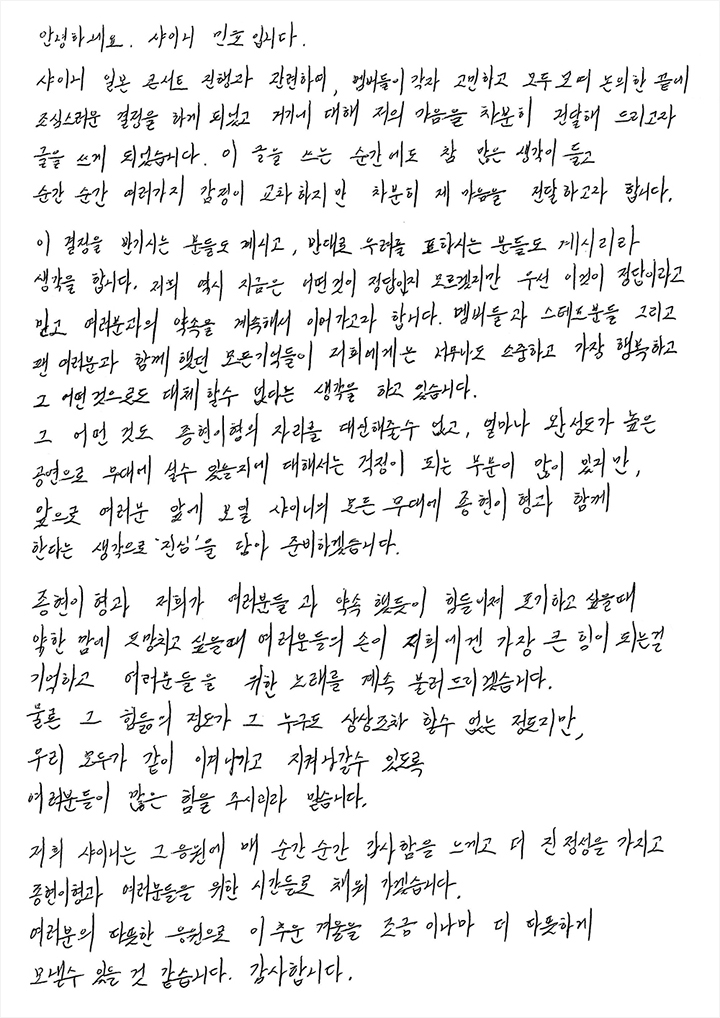 안녕하세요. 샤이니 민호입니다.
샤이니 일본 콘서트 진행과 관련하여, 멤버들이 각자 고민하고 모두 모여 논의한 끝에
조심스러운 결정을 하게 되었고 거기에 대해 저의 마음을 차분히 전달해 드리고자
글을 쓰게 되었습니다. 이 글을 쓰는 순간에도 참 많은 생각이 들고
순간 순간 여러가지 감정이 교차하지만 차분히 제 마음을 전달하고자 합니다.
이 결정을 반기시는 분들도 계시고, 반대로 우려를 표하시는 분들도 계시리라
생각을 합니다. 저희 역시 지금은 어떤것이 정답인지 모르겠지만 우선 이것이 정답이라고
믿고 여러분과의 약속을 계속해서 이어가고자 합니다. 멤버들과 스태프분들 그리고
팬 여러분과 함께 했던 모든기억들이 저희에게는 너무나도 소중하고 가장 행복하고
그 어떤것으로도 대체 할수 없다는 생각을 하고 있습니다.
그 어떤 것도 종현이형의 자리를 대신해줄수 없고, 얼마나 완성도가 높은
공연으로 무대에 설수 있을지에 대해서는 걱정이 되는 부분이 많이 있지만,
앞으로 여러분 앞에 보일 샤이니의 모든 무대에 종현이형과 함께
한다는 생각으로 '진심'을 담아 준비하겠습니다.
종현이형과 저희가 여러분들과 약속 했듯이 힘들어져 포기하고 싶을때
약한 맘에 도망치고 싶을때 여러분들의 손이 저희에겐 가장 큰 힘이 되는걸
기억하고 여러분들을 위한 노래를 계속 불러드리겠습니다.
물론 그 힘듦의 정도가 그 누구도 상상조차 할수 없는 정도지만,
우리 모두가 같이 이겨나가고 지켜나갈수 있도록
여러분들이 많은 힘을 주시리라 믿습니다.
저희 샤이니는 그 응원에 매 순간 순간 감사함을 느끼고 더 진정성을 가지고
종현이형과 여러분들을 위한 시간들로 채워 가겠습니다.
여러분의 따뜻한 응원으로 이 추운 겨울을 조금이나마 더 따뜻하게
보낼수 있을 것 같습니다. 감사합니다.